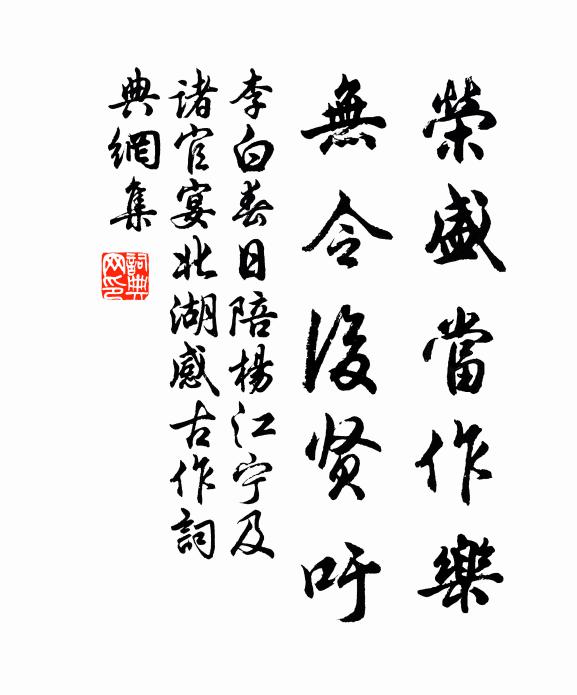 榮盛當作樂
無令後贤吁
李白春日陪楊江宁及
诸官宴北湖感古作詞
典網集
詞典
网印